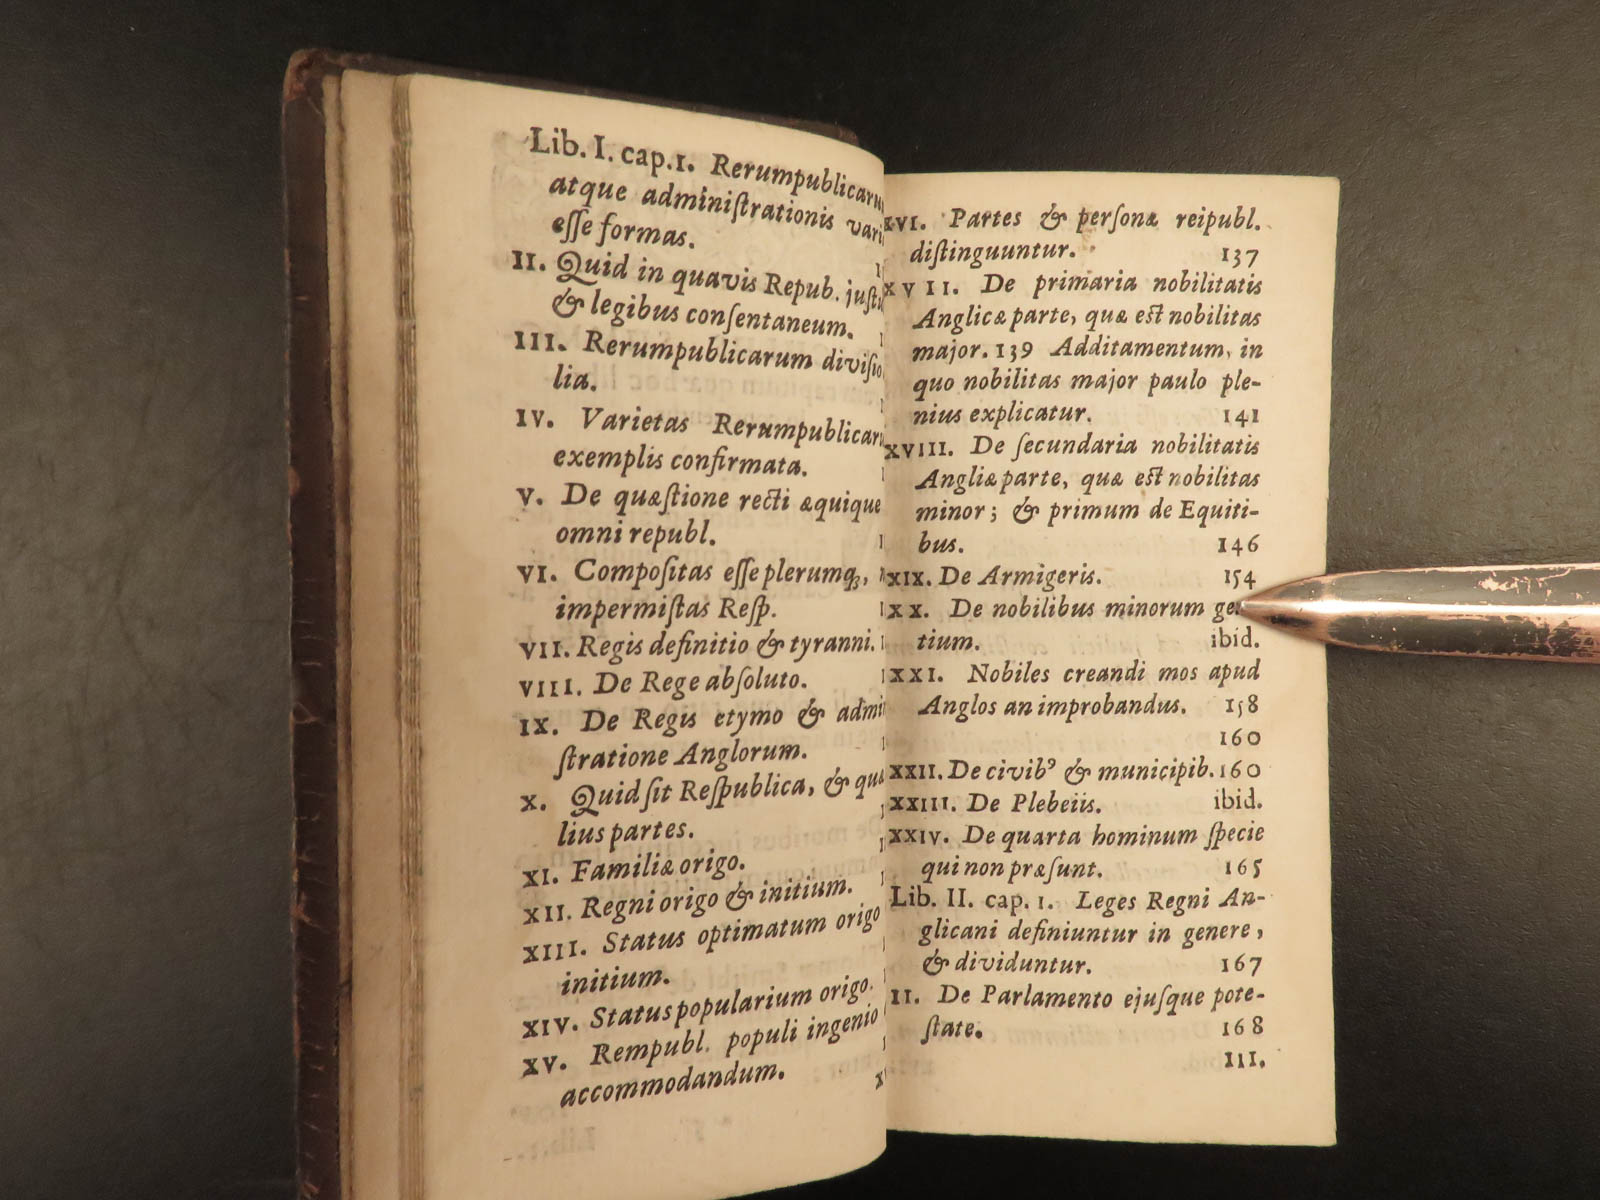 Lib. I. cap. 1. Rerumpublicaru
atque administrationis vari
esse formas.
II. Quid in quavis Repub. justu
& legibus consentaneum.
III. Rerumpublicarum divisio
lia.
IV. Varietas Rerumpublicaru
exemplis confirmata.
V. De quæstione recti æquique
omni republ.
VI. Compositas esse plerumq;,
impermistas Resp.
VII. Regis definitio & tyranni.
VIII. De Rege absoluto.
IX. De Regis etymo & admi
stratione Anglorum.
X. Quid sit Respublica, & qua
lius partes.
XI. Familiæ origo.
XII. Regni origo & initium.
XIII. Status optimatum origo
initium.
XIV. Status popularium origo.
XV. Rempubl. populi ingenio
accommodandum.
XVI. Partes & personæ reipubl.
distinguuntur. 137
XVII. De primaria nobilitatis
Anglicæ parte, quæ est nobilitas
major. 139 Additamentum, in
quo nobilitas major paulo ple-
nius explicatur. 141
XVIII. De secundaria nobilitatis
Angliæ parte, quæ est nobilitas
minor; & primum de Equiti-
bus. 146
XIX. De Armigeris. 154
XX. De nobilibus minorum
tium. ibid.
XXI. Nobiles creandi mos apud
Anglos an improbandus. 158
160
XXII. De civibꝰ & municipib. 160
XXIII. De Plebeiis. ibid.
XXIV. De quarta hominum specie
qui non præsunt. 165
Lib. II. cap. 1. Leges Regni An-
glicani definiuntur in genere,
& dividuntur. 167
II. De Parlamento ejusque pote-
state. 168
III.